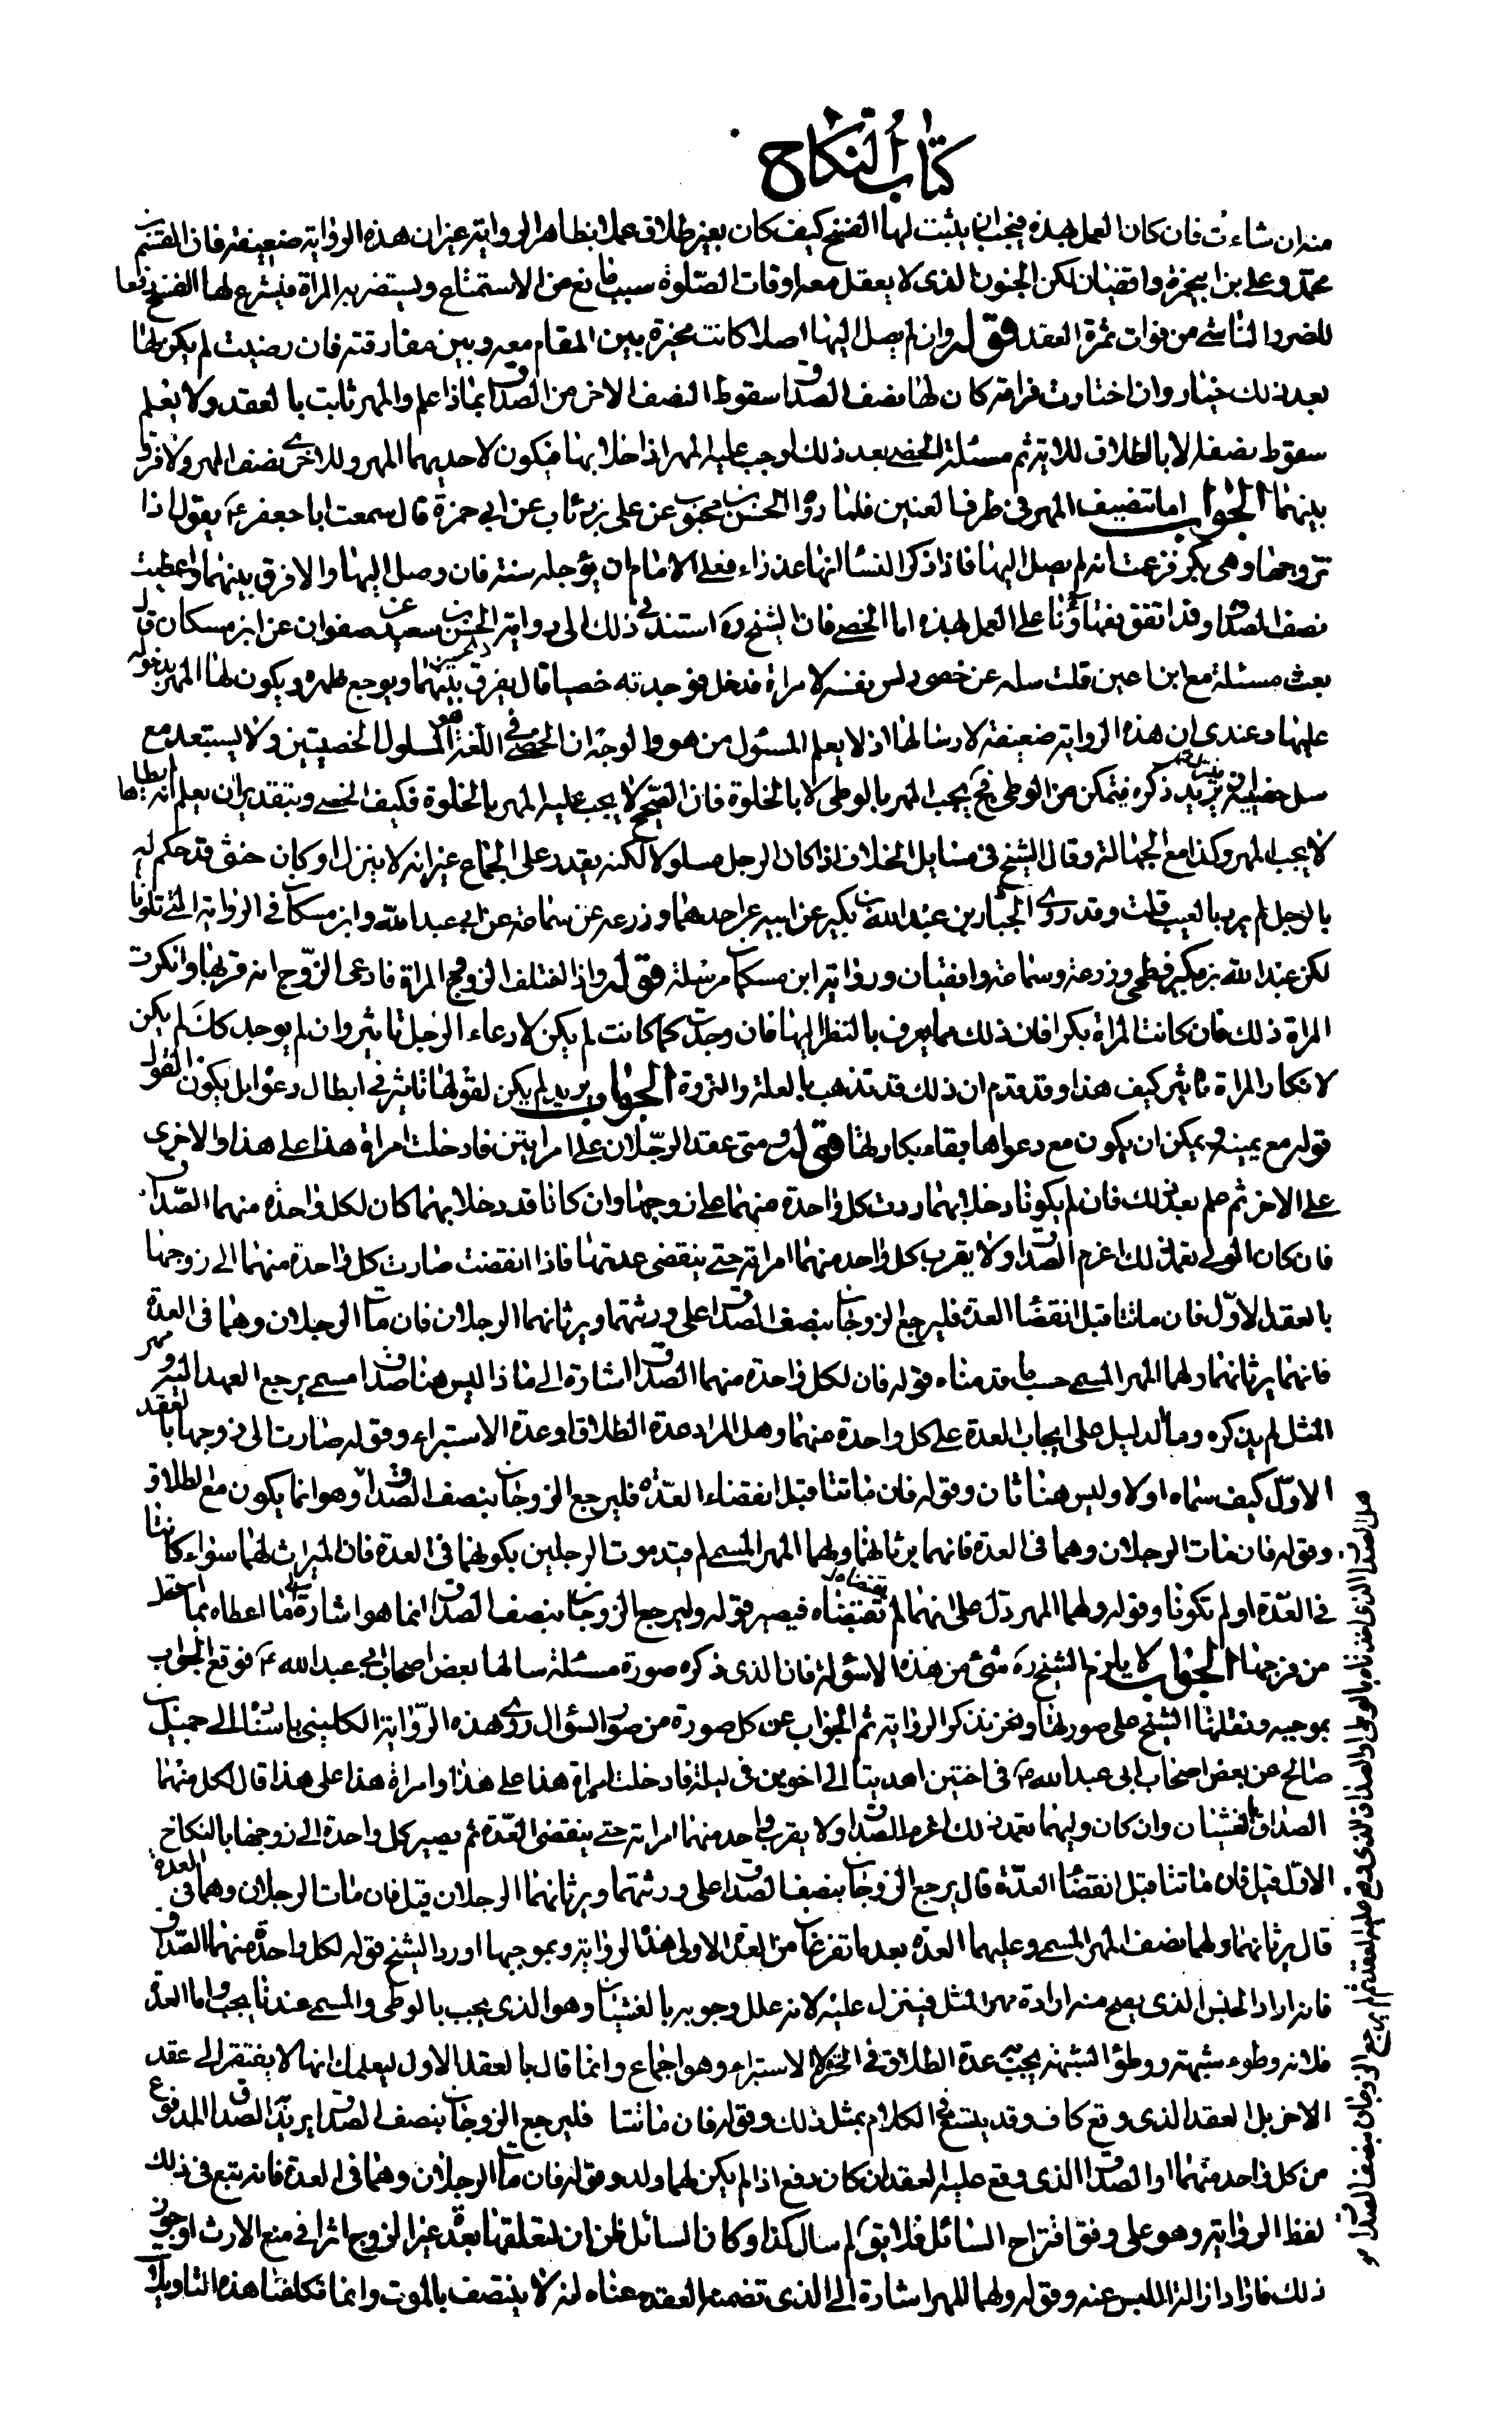 كتاب النكاح
منه ان شاءت فان كان العمل بهذه فيجب ان يثبت لها الفسخ كيف كان بغير طلاق عملا بظاهر الرواية غير ان هذه الرواية ضعيفة فان القسم بن
محمد وعلى بن ابيحمزة واقفيان لكن الجنون الذى لا يعقل معه اوقات الصلوة سبب مانع من الاستمتاع ويستضر به المراة فيشرع لها الفسخ دفعا
للضرر الناشى من فوات ثمرة العقد قوله وان لم يصل اليها اصلا كانت مخيرة بين المقام معه وبين مفارقته فان رضيت لم يكن لها
بعد ذلك خيار وان اختارت فراقه كان لها نصف الصداق سقوط النصف الاخر من الصداق بماذا علم والمهر ثابت بالعقد ولا يعلم
سقوط نصفه الا بالطلاق للاية ثم مسئلة الخصى بعد ذلك اوجب عليه المهر اذا خلا بها فيكون لاحديهما المهر وللاخرى نصف المهر ولا فرق
بينهما الجواب اما تنصيف المهر فى طرف العنين فلما رواه الحسن بن محبوب عن على بن رئاب عن ابى حمزة قال سمعت ابا جعفر ع يقول اذا
تزوجها وهى بكر فزعمت انه لم يصل اليها فاذا ذكرا النسا انها عذراء فعلى الامام ان يؤجله سنة فان وصل اليها والا فرق بينهما واعطيت
نصف الصداق وقد اتفق فقهاؤنا على العمل بهذه اما الخصى فان الشيخ ره استند فى ذلك الى رواية الحسين بن سعيد عن صفوان عن ابن مسكان قال
بعث مسئلة مع ابن اعين قلت سله عن خصى دلس نفسه لامراة فدخل فوجدته خصيا قال يفرق بينهما ويوجع ظهره ويكون لها المهر بدخوله
عليها وعندى ان هذه الرواية ضعيفة لارسالها اذ لا يعلم المسئول من هو والوجه ان الخصى فى اللغة هو المسلول الخصيتين ولا يستبعد مع
سل خصيتيه ذكره فيتمكن من الوطى فح يجب المهر بالوطى لا بالخلوة فان الصحيح لا يجب عليه المهر بالخلوة فكيف الخصى وبتقدير ان يعلم انه يطاها
لا يجب المهر وكذا مع الجهالة وقال الشيخ فى مسايل الخلاف اذا كان الرجل مسلولا لكنه يقدر على الجماع غير انه لا ينزل او كان خنثى قد حكم له
بالرجل لم يرد بالعيب قلت وقد روى الجبار بن عبد الله بن بكير عن ابيه عن احدهما وزرعه عن سماعة عن ابى عبد الله وابن مسكان فى الرواية التى تلوناها
لكن عبد الله بن بكير فطحى وزرعة وسماعة واقفيان ورواية ابن مسكان مرسلة قوله واذا اختلف الزوج والمراة فادعى الزوج انه قربها وانكرت
المراة ذلك فان كانت المراة بكرا فان ذلك مما يعرف بالنظر اليها فان وجدت كما كانت لم يكن لادعاء الرجل تاثير وان لم يوجد كان لم يكن
لانكار المراة تاثير كيف هذا وقد تقدم ان ذلك قد تذهب بالعلة والنزوة الجواب يريد لم يكن لقولها تاثير فى ابطال دعواه بل يكون القول
قوله مع يمينه ويمكن ان يكون مع دعواها بقاء بكارتها قوله ومتى عقد الرجلان على امراتين فادخلت امراة هذا على هذا والاخرى
على الاخر ثم علم بعد ذلك فان لم يكونا دخلا بهما ردت كل واحدة منهما على زوجها وان كانا قد دخلا بهما كان لكل واحدة منهما الصداق
فان كان الولى تعمد ذلك اغرم الصداق ولا يقرب كل واحد منهما امراته حتى ينقضى عدتها فاذا انقضت صارت كل واحدة منهما الى زوجها
بالعقد الاول فان ماتتا قبل انقضاء العدة فليرجع الزوجان بنصف الصداق على ورثتهما ويرثانهما الرجلان فان مات الرجلان وهما فى العدة
فانهما يرثانهما ولهما المهر المسمى حسب ما قدمناه قوله فان لكل واحدة منهما الصداق اشارة الى ماذا ليس هنا صداق مسمى يرجع العهد اليه ومهر
المثل لم يذكره وما الدليل على ايجاب العدة على كل واحدة منهما وهل المراد عدة الطلاق او عدة الاستبراء وقوله صارت الى زوجها بالعقد
الاول كيف سماه اولا وليس هنا ثان وقوله فان ماتتا قبل انقضاء العدة فليرجع الزوجان بنصف الصداق وهو انما يكون مع الطلاق
وقوله فان مات الرجلان وهما فى العدة فانهما يرثانهما ولهما المهر المسمى لم قيد موت الرجلين بكونهما فى العدة فان الميراث لهما سواء كانتا
فى العدة او لم تكونا وقوله ولهما المهر دل على انهما لم تقبضاه فيصير قوله وليرجع الزوجان بنصف الصداق انما هو اشارة الى ما اعطاه
من فرجها الجواب لا يلزم الشيخ ره شئ من هذه الاسؤلة فان الذى ذكره صورة مسئلة سالها بعض اصحاب ابى عبد الله ع فوقع الجواب
بموجبه ونقلها الشيخ على صورتها ونحن نذكر الرواية ثم الجواب عن كل صورة من صور السؤال روى هذه الرواية الكلينى باسناده الى جميل بن
صالح عن بعض اصحاب ابى عبد الله ع فى اختين اهديتا الى اخوين فى ليلة فادخلت امراة هذا على هذا وامراة هذا على هذا قال لكل منهما
الصداق بالغشيان وان كان وليهما تعمد ذلك اغرم الصداق ولا يقرب واحد منهما امراته حتى ينقضى العدة ثم يصير كل واحدة الى زوجها بالنكاح
الاول قيل فان ماتتا قبل انقضاء العدة قال يرجع الزوجان بنصف الصداق على ورثتهما ويرثانهما الرجلان قيل فان مات الرجلان وهما فى العدة
قال يرثانهما ولهما نصف المهر المسمى وعليهما العدة بعد ما تفرغان من العدة الاولى هذه الرواية وبموجبها اورد الشيخ قوله لكل واحدة منهما الصداق
فانه اراد الجنس الذى يصح منه ارادة مهر المثل فينزل عليه لانه علل وجوبه بالغشيان وهو الذى يجب بالوطى والمسمى عندنا يجب واما العدة
فلانه وطوء شبهة ووطؤ الشبهة يجب منه عدة الطلاق فى الحرة لا الاستبراء وهو اجماع وانما قال بالعقد الاول ليعلمك انها لا يفتقر الى عقد
الاخر بل العقد الذى وقع كاف وقد يستنتج الكلام بمثل ذلك وقوله فان ماتتا فليرجع الزوجان بنصف الصداق يريد الصداق المدفوع
من كل واحد منهما او الصداق الذى وقع عليه العقد ان كان دفع اذا لم يكن لهما ولد وقوله فان مات الرجلان وهما فى العدة فانه يتبع فى ذلك
لفظ الرواية وهو على وفق اقتراح السائل فلا يق لم سال كذا وكان السائل ظن ان لتعلقها بعدة غير الزوج اثرا فى منع الارث او جوز
ذلك فاراد ازالة اللبس عنه وقوله ولهما المهر اشارة الى الذى تضمنه العقد معناه انه لا ينتصف بالموت وانما تكلفنا هذه التاويل
هل الصداق الذى اخذناه بالوطى او الصداق الذى وقع عليه العقد ثم لم يرجع الزوجان بنصف الصداق